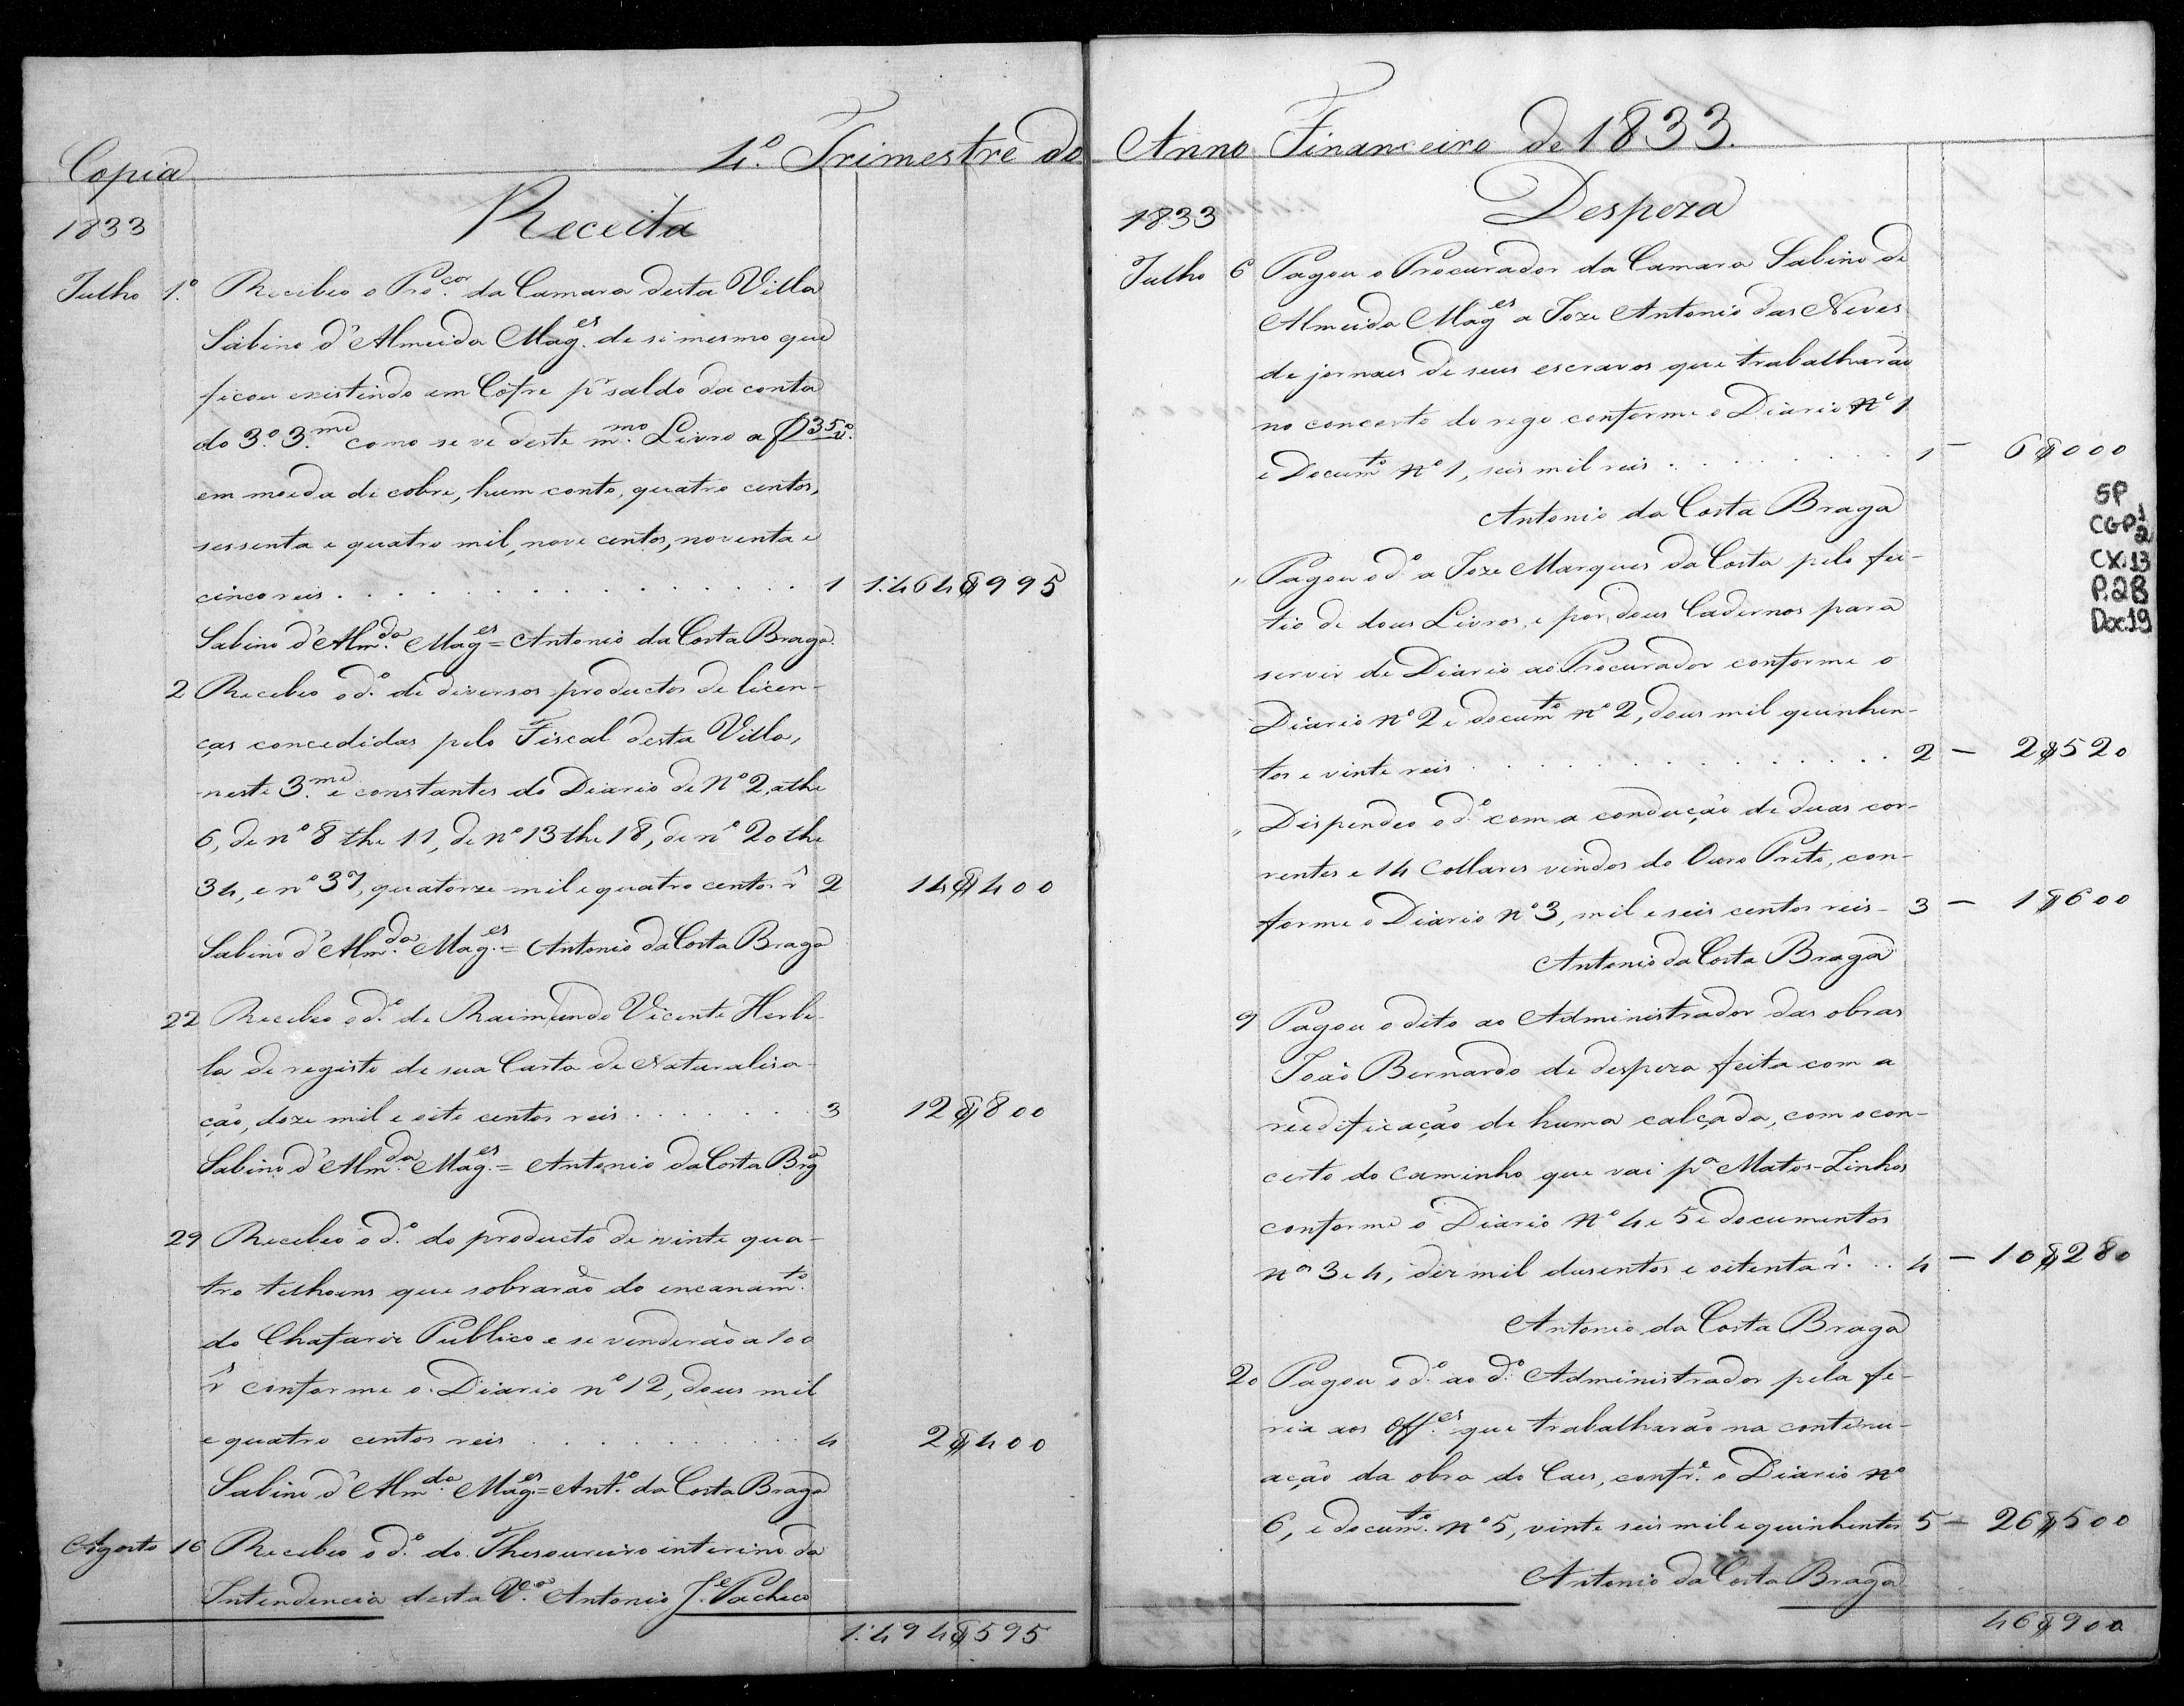 Copia
4.º Trimestre do
1833
Receita
Julho 1.º Recebeo o Pro.cor da Camara desta Villa
Sabino d'Almeida Mag.es de si mesmo que
ficou existindo em Cofre pr saldo da conta
do 3.º 3.me como se ve deste m.mo Livro a f 35 v.º
em moeda de cobre, hum conto, quatro centos,
sessenta e quatro mil, nove centos, noventa e
cinco reis . . . . . . . . . . . . . . . . 1 1:464$995
Sabino d'Alm.da Mag.es = Antonio da Costa Braga.
2 Recebeo o d.º de diversos productos de licen-
ças concedidas pelo Fiscal desta Villa,
neste 3.me e constantes do Diario de Nº 2, athe
6, de nº 8 the 11, de nº 13 the 18, de nº 20 the
34, e nº 37, quatorze mil e quatro centos r̂ 2 14$400
Sabino d'Alm.da Mag.es = Antonio da Costa Braga
22 Recebeo o d.º de Raimundo Vicente Herbe-
la de registo de sua Carta de Naturalisa-
ção, doze mil e oito centos reis . . . . . . . 3 12$800
Sabino d'Alm.da Mag.es = Antonio da Costa Brgª
29 Recebeo o d.º do producto de vinte qua-
tro telhoens que sobrarão do encanam.to
do Chafariz Publico e se venderão a 100
r̂ conforme o Diario nº 12, dous mil
e quatro centos reis . . . . . . . . . . . 4 2$400
Sabino d'Alm.da Mag.es = Ant.º da Costa Braga
Agosto 16 Recebeo o d.º do Thesoureiro interino da
Intendencia desta Vª Antonio J.e Pacheco
1:494$595
Anno Financeiro de 1833.
1833
Despeza
Julho 6 Pagou o Procurador da Camara Sabino de
Almeida Mag.es a Joze Antonio das Neves
de jornaes de seus escravos que trabalharão
no concerto do rego conforme o Diario Nº 1
e Docum.to Nº 1, seis mil reis . . . . . . . . . 1 — 6$000
Antonio da Costa Braga
SP
CGP1 2
CX.13
P.28
Doc.19
" Pagou o d.º a Joze Marques da Costa pelo fei-
tio de dous Livros, e por dous Cadernos para
servir de Diario ao Procurador conforme o
Diario nº 2 e docum.to nº 2, dous mil quinhen-
tos e vinte reis . . . . . . . . . . . . . . . . 2 — 2$520
" Despendeo o d.º com a condução de duas cor-
rentes e 14 Collares vindos do Ouro Preto, con-
forme o Diario nº 3, mil e seis centos reis - 3 — 1$600
Antonio da Costa Braga
9 Pagou o dito ao Administrador das obras
João Bernardo de despeza feita com a
reedificação de huma calçada, com o con-
certo do caminho que vai pª Matos-Zinhos
conforme o Diario Nº 4 e 5 e documentos
nos 3 e 4, dez mil dusentos e oitenta r̂. . . 4 — 10$280
Antonio da Costa Braga
20 Pagou o d.º ao d.º Administrador pela fe-
ria aos Off.es que trabalharão na continu-
ação da obra do Caes, confr.e o Diario nº
6, e docum.to nº 5, vinte seis mil e quinhentos 5 — 26$500
Antonio da Costa Braga
46$900